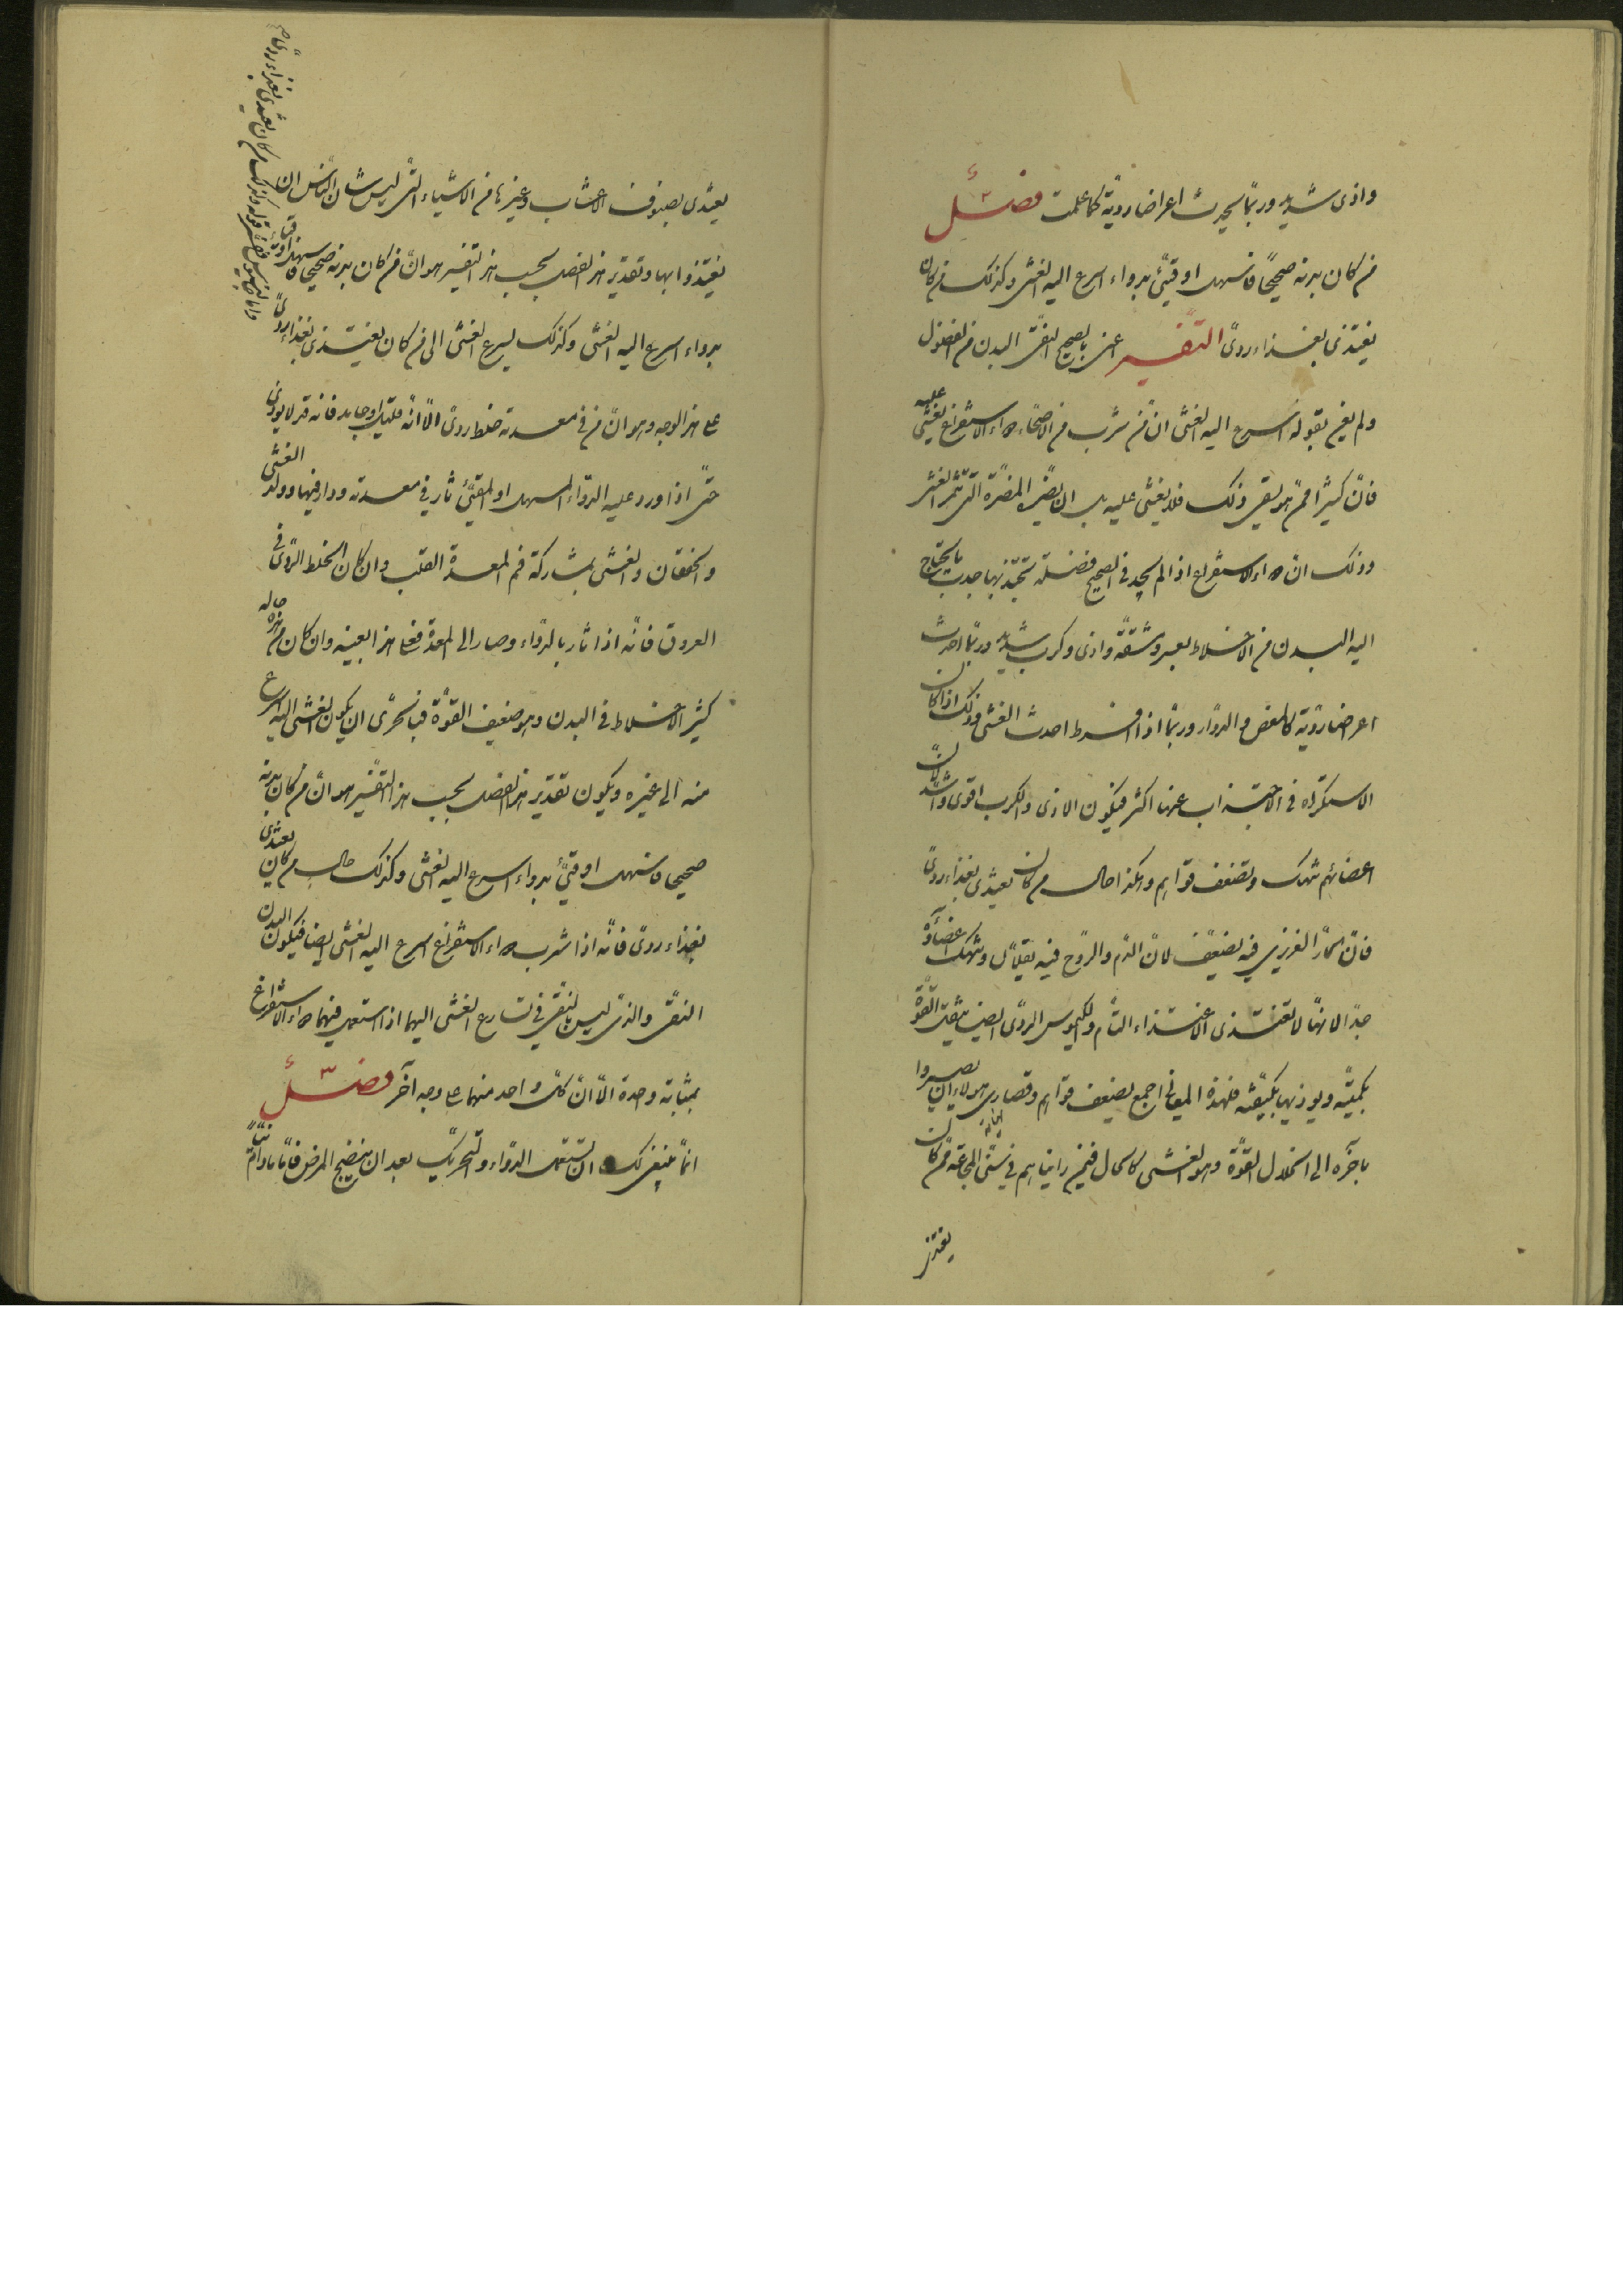 واذى شديد وربّما يحدث اعراضا رديّة كما علمت فصل
من كان بدنه صحيحًا فاسهل او قيّئ بدواء اسرع اليه الغشى وكذلك من كان
يغتذى بغذاء ردىّ التفسير اعنى بالصحيح النقىّ البدن من الفضول
ولم يعن بقوله اسرع اليه الغشى ان من شرب من الاصحّاء دواء الاستفراغ يغشى عليه
فانّ كثيرًا ممن هو يسقى ذلك فلا يغشى عليه بل ان يضرّ المضرّة التى تثمر الغشى
وذلك انّ دواء الاستفراغ اذا لم يجد فى الصحيح فضلة تجتذبها جذب ما يحتاج
اليه البدن من الاخلاط بعسر ومشقّة واذى وكرب شديد وربّما احدث
اعراضا رديّة كالمغص والدوار وربّما اذا افرط احدث الغشى وذلك اذا كان
الاستكراه فى الاجتذاب عنها اكثر فيكون الاذى والكرب اقوى واشدّ لانّ
اعضائهم تنهك وتضعف قواهم وهكذا حال من كان يغتذى بغذاء ردىّ
فانّ الحارّ الغريزى فيه يضعف لانّ الدّم والرّوح فيه يقلّان وتنهك اعضاؤه
جدّا لانهّا لا تغتذى الاغتذاء التامّ والكيموس الردىّ ايضا يثقل القوّة
بكميّته ويوذيها بكيفيّته فهذه المعانى اجمع يضعف قواهم وقصارى هولاء ان يصيروا
باخره الى انحلال القوّة وهو الغشى كالحال فيمن رايناهم فى سنى المجاعة ممن كان
يغتذى
يغتذى بصنوف الاعشاب وغيرها من الاشياء التى ليس شان الناس ان
يغتذوا بها وتقدير هذا الفصل بحسب هذا التفسير هو انّ من كان بدنه صحيحا فاسهل او قيّئ
بدواء اسرع اليه الغشى وكذلك يسرع الغشى الى من كان يغتذى بغذاء ردىّ
على هذا الوجه وهو انّ من فى معدته خلط ردىّ الّا انّه قليل او جامد فانه قد لا يوذى
حتّى اذا ورد عليه الدواء المسهل او المقيّئ ثار فى معدته ودار فيها وولّد الغشى
والخفقان والغشى بمشاركة فم المعدة القلب وان كان الخلط الردىّ فى
العروق فانّه اذا ثار بالدواء وصار الى المعدة فعل هذا بعينه وان كان من هذه حاله
كثير الاخلاط فى البدن وهو ضعيف القوّة فبالحرى ان يكون الغشى اليه اسرع
منه الى غيره ويكون تقدير هذا الفصل بحسب هذا التفسير هو انّ من كان بدنه
صحيحا فاسهل او قيّئ بدواء اسرع اليه الغشى وكذلك حال من كان يغتذى
بغذاء ردىّ فانّه اذا شرب دواء الاستفراغ اسرع اليه الغشى ايضا فيكون البدن
النقىّ والذى ليس بالنقىّ فى تسارع الغشى اليهما اذا استعمل فيهما دواء الاستفراغ
بمثابة واحدة الّا انّ كلّ واحد منهما على وجه آخر فصل
انمّا ينبغى لك ان تستعمل الدواء والتحريك بعد ان ينضج المرض فامّا ما دام نيّا